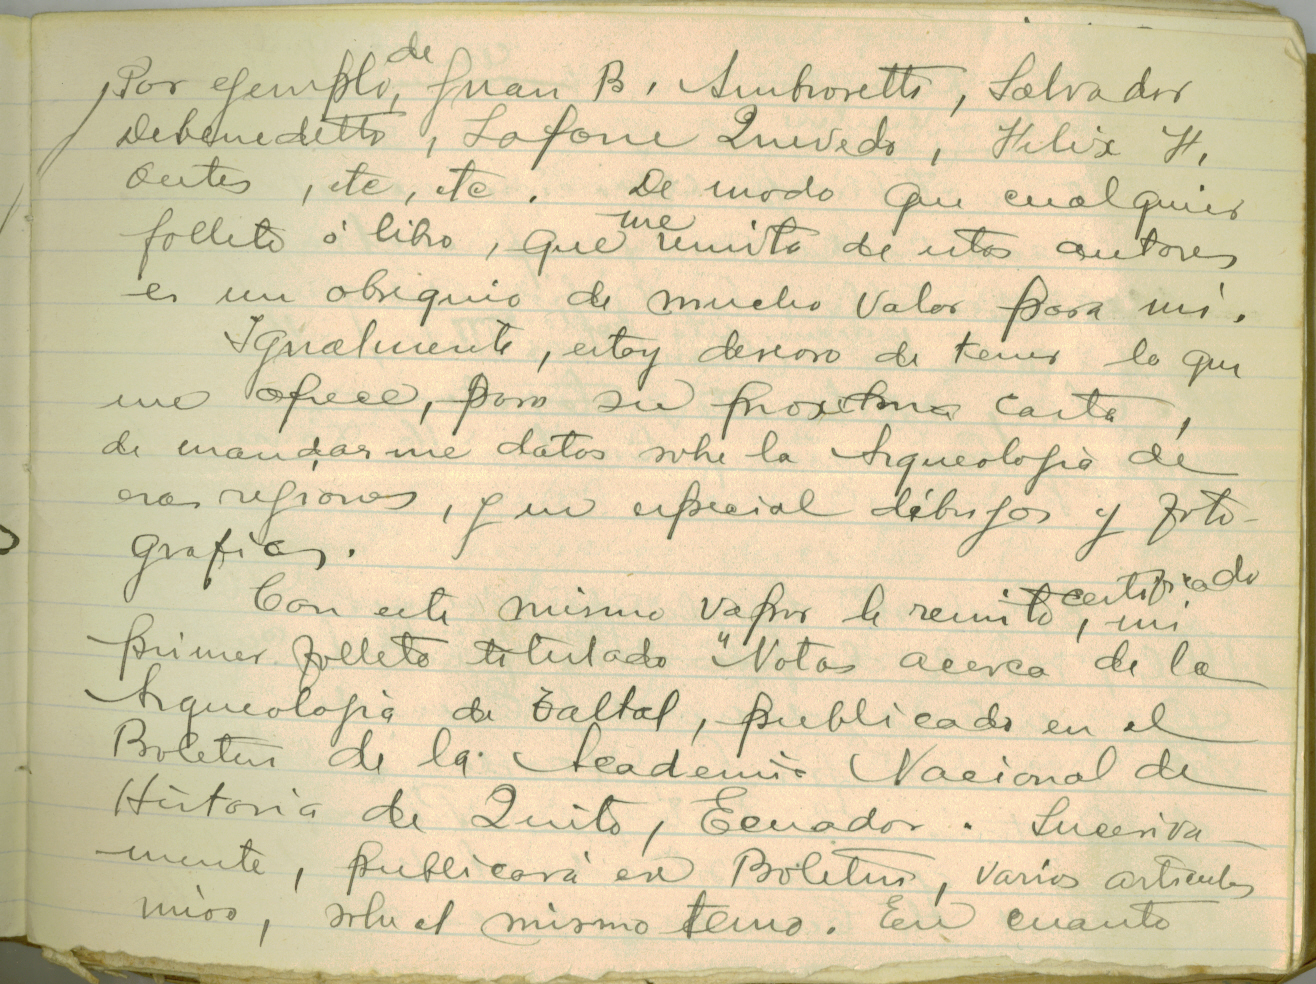 Por ejemplo, de Juan B. Ambrosetti, Salvador
Debenedetto, Lafone Quevedo, Felix F.
Outes, etc, etc. De modo que cualquier
folleto ó libro, que me remita de estos autores
es un obsequio de mucho valor para mi.
Igualmente, estoy deseoso de tener lo que
me ofrece, para su proxima carta,
de mandarme datos sobre la Arqueologia de
esas regiones, y en especial dibujos y foto-
grafias.
Con este mismo vapor le remito certificado, mi
primer folleto titulado "Notas acerca de la
Arqueologia de Taltal, publicado en el
Boletin de la Academia Nacional de
Historia de Quito, Ecuador. Sucesiva-
mente, publicará ese Boletin, varios articulos
mios, sobre el mismo tema. En cuanto